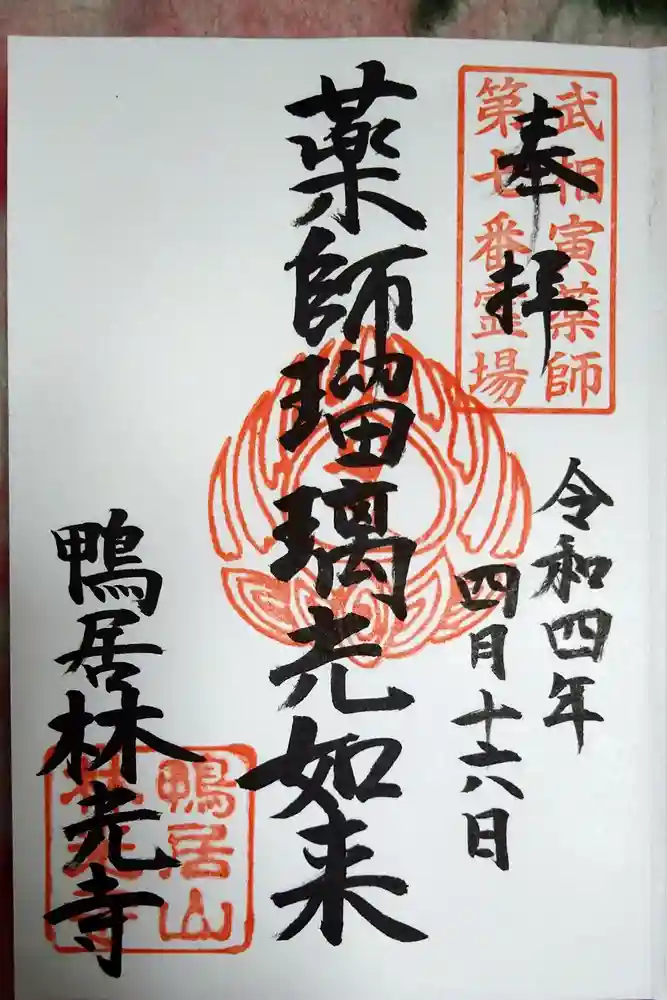 武相寅薬師
第七番霊場
奉拝
令和四年
四月十六日
薬師瑠璃光如来
鴨居林光寺
鴨居山
林光寺